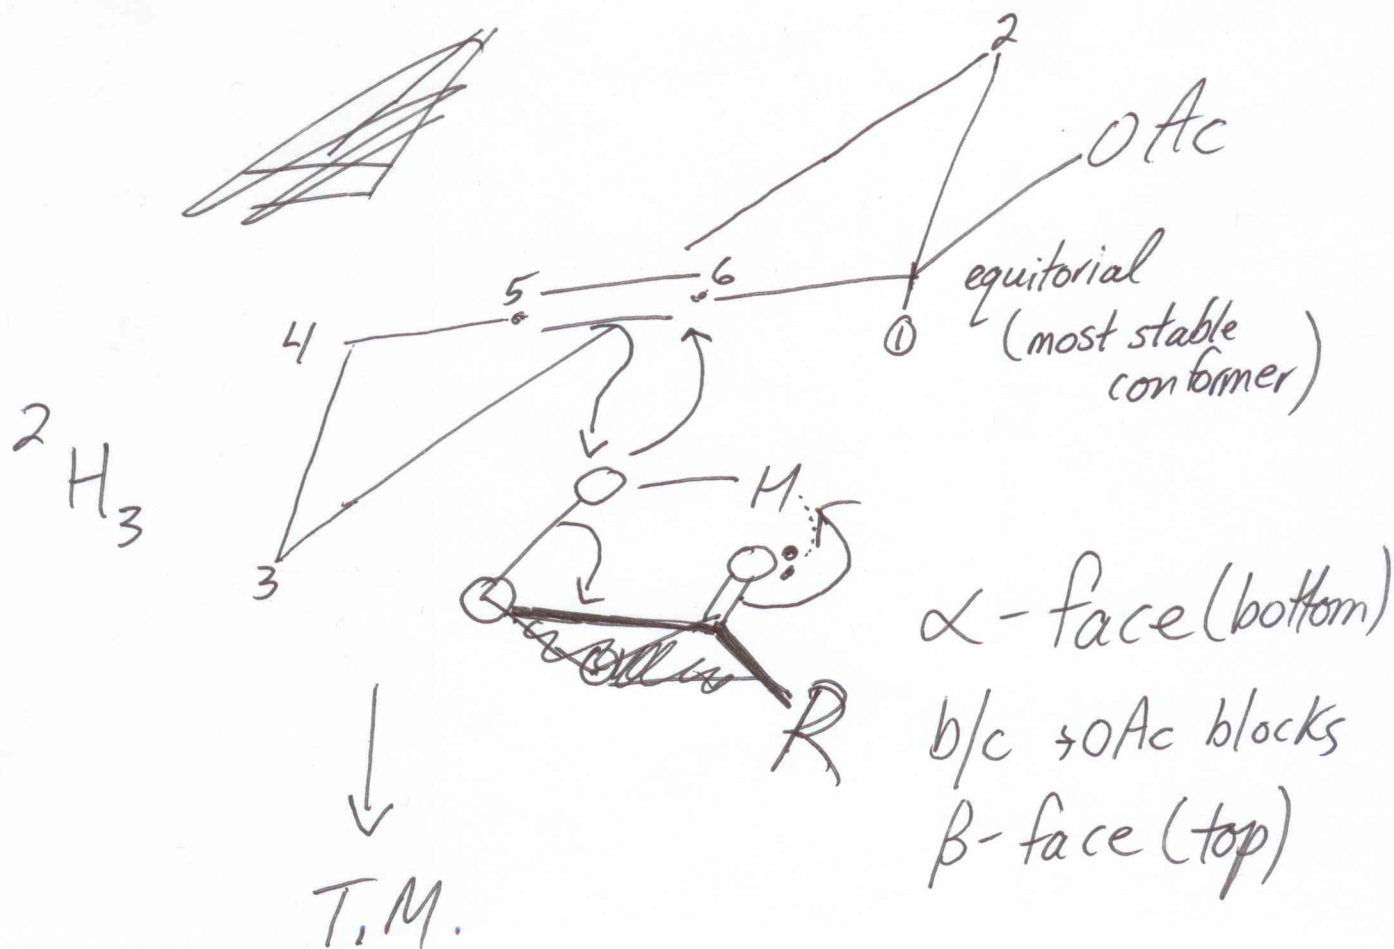 2
OAc
6
5
equitorial
4
①
(most stable
conformer)
2H3
O
H
3
O
O
α-face (bottom)
R
b/c →OAc blocks
β-face (top)
T.M.